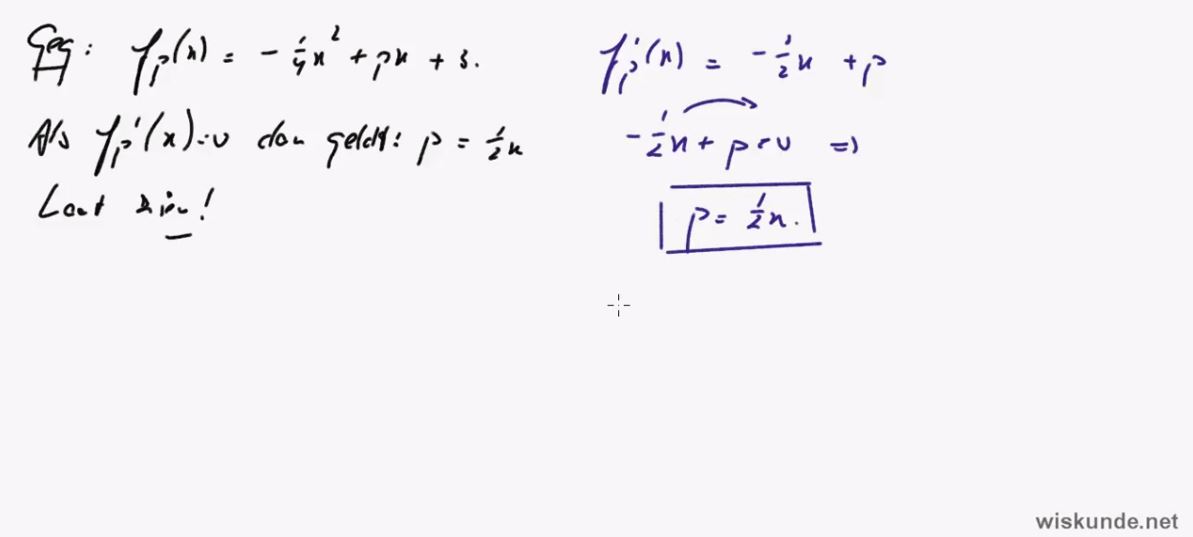 Geg: fₚ(x) = -¼x² + px + 3.
Als fₚ'(x)=0 dan geldt: p = ½x
Laat zien!
fₚ'(x) = -½x + p
-½x + p = 0 ⇒
p = ½x.
wiskunde.net